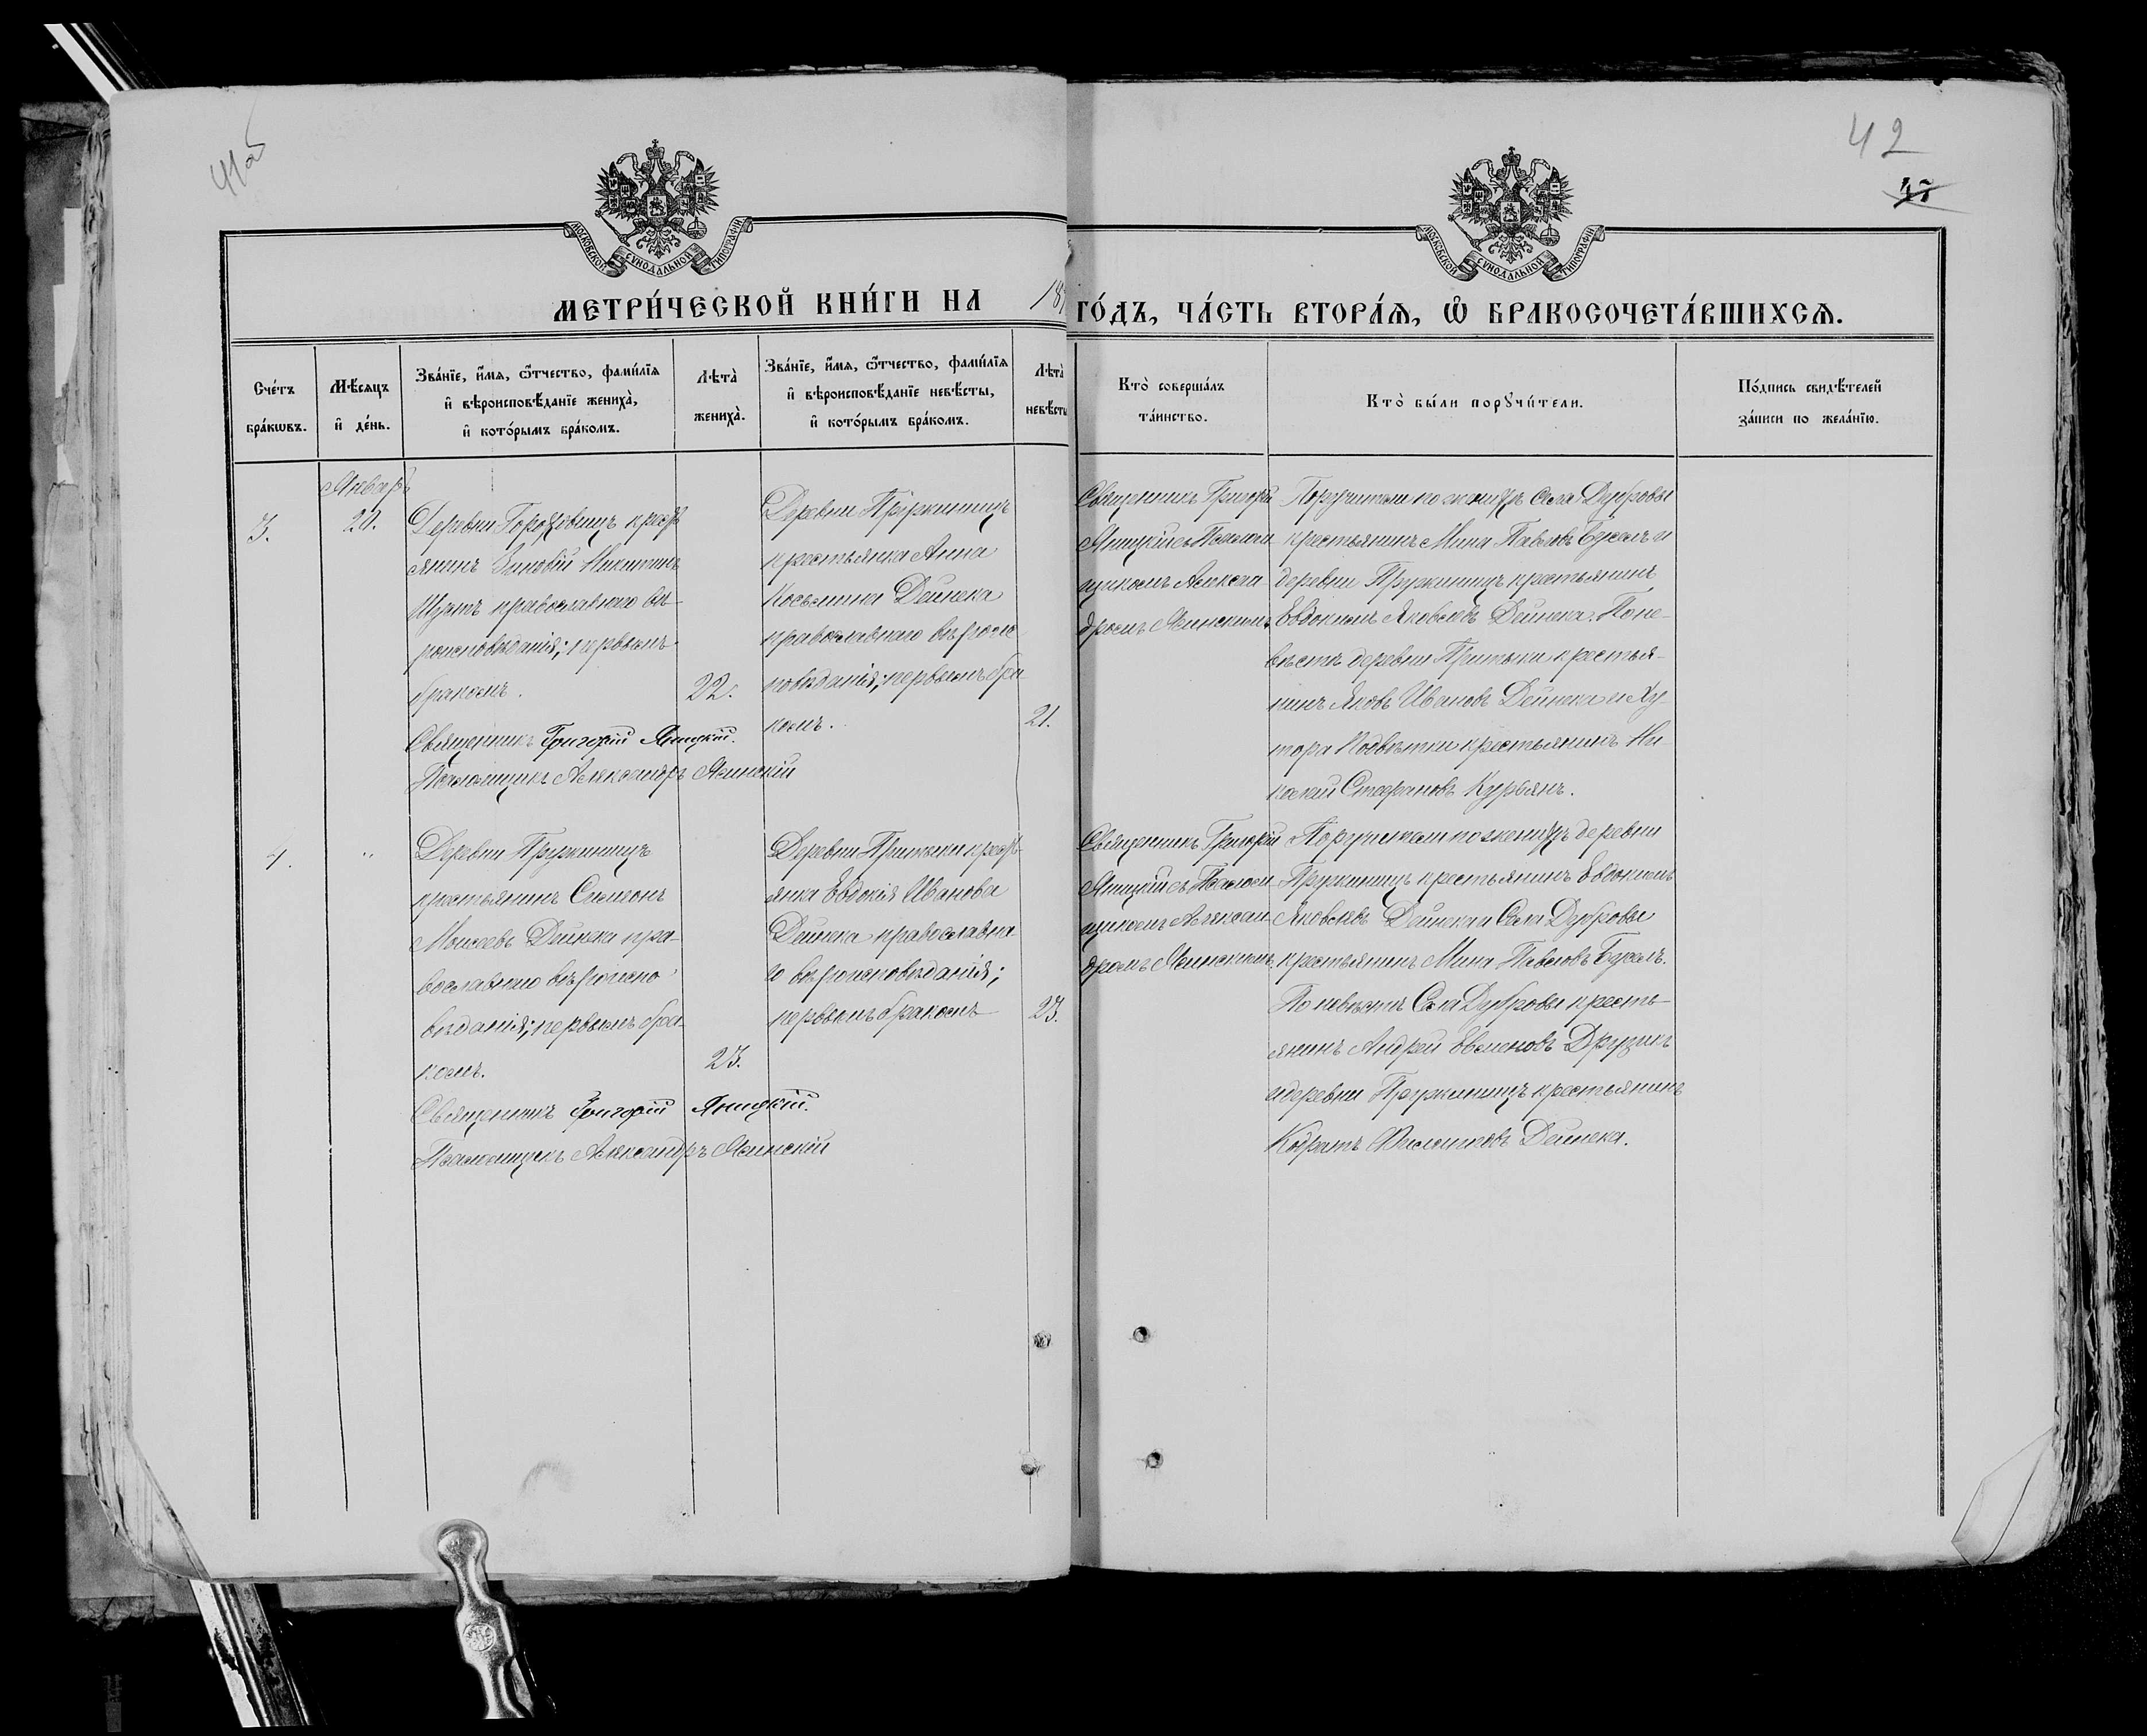 41об
42
МОСКОВСКОЙ СѴНОДАЛЬНОЙ ТИПОГРАФІИ
МОСКОВСКОЙ СѴНОДАЛЬНОЙ ТИПОГРАФІИ
МЕТРИ́ЧЕСКОЙ КНИ́ГИ НА 18
ГО́ДЪ, ЧА́СТЬ ВТОРА́Ѧ, Ѽ БРАКОСОЧЕТА́ВШИХСѦ.
Сче́тъ
бра́кѡвъ.
Мѣ́сяцъ
и҆ де́нь.
Зва́нїе, и҆́мя, ѻ҆́тчество, фами́лїя
и҆ вѣроисповѣ́данїе жениха̀,
и҆ кото́рымъ бра́комъ.
Лѣта̀
жениха̀.
Зва́нїе, и҆́мя, ѻ҆́тчество, фами́лїя
и҆ вѣроисповѣ́данїе невѣ́сты,
и҆ кото́рымъ бра́комъ.
Лѣта̀
невѣ́сты
Кто̀ соверша́лъ
та́инство.
Кто̀ бы́ли порꙋчи́тели.
По́дпись свидѣ́телей
за́писи по жела́нїю.
3.
Январь
21.
Деревни Городовищъ кресть
янинъ Зиновій Никитинъ
православнаго вѣ-
роисповѣданія; первымъ
бракомъ.
22.
Священникъ Григорій Яницкій.
Псаломщикъ Александръ Ясинскій
Деревни Пружинищъ
крестьянка Анна
Косьмина Дейнека
православнаго вѣроис
повѣданія; первымъ бра
комъ.
21.
Священникъ Григорій
Яницкій съ Псалом
щикомъ Алексан
дромъ Ясинскимъ.
Поручители по женихѣ Села Дубровы
крестьянинъ Мина Павловъ Бусель и
деревни Пружинищъ крестьянинъ
Евдокимъ Яковлевъ Дейнека. По не-
вѣстѣ деревни Притыки крестья-
нинъ Яковъ Ивановъ Дейнека и Ху-
тора Подвѣтки крестьянинъ Ни-
колай Стефановъ Курьянъ.
4.
"
Деревни Пружинищъ
крестьянинъ Симеонъ
Моисеевъ Дейнека пра-
вославнаго вѣроиспо
вѣданія; первымъ бра-
комъ.
23.
Священникъ Григорій Яницкій.
Псаломщикъ Александръ Ясинскій
Деревни Притыки кресть-
янка Евдокія Иванова
Дейнека православна-
го вѣроисповѣданія;
первымъ бракомъ
23.
Священникъ Григорій
Яницкій съ Псалом
щикомъ Алексан
дромъ Ясинскимъ.
Поручители по женихѣ деревни
Пружинищъ крестьянинъ Евдокимъ
Яковлевъ Дейнека и Села Дубровы
крестьянинъ Мина Павловъ Бусель.
По невѣстѣ Села Дубровы кресть-
янинъ Андрей Евменовъ Друзикъ
и деревни Пружинищъ крестьянинъ
Кодратъ Филиповъ Дейнека.